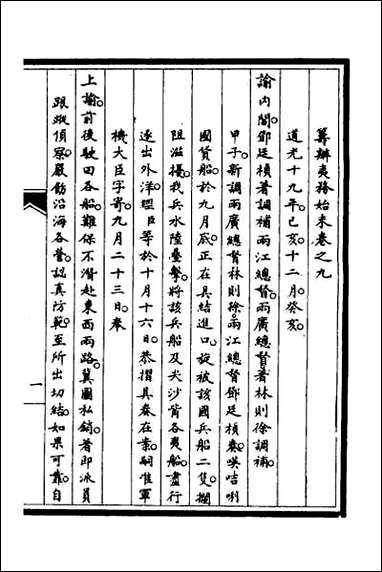 籌辦夷務始末卷之九
道光十九年己亥十二月癸亥
諭內閣鄧廷楨著調補兩江總督兩廣總督著林則徐調補
甲子新調兩廣總督林則徐兩江總督鄧廷楨奏喫咭唎
國貨船於九月底正在具結進口旋被該國兵船二隻攔
阻滋擾我兵水陸疊擊將該兵船及尖沙嘴各夷船盡行
逐出外洋臣等於十月十六日恭摺具奏在案嗣准軍
機大臣字寄九月二十三日奉
上諭前後駛回各船難保不潛赴東西兩路冀圖私銷著即派員
跟蹤偵察嚴飭沿海各營認真防範至所出切結如果可靠自
一